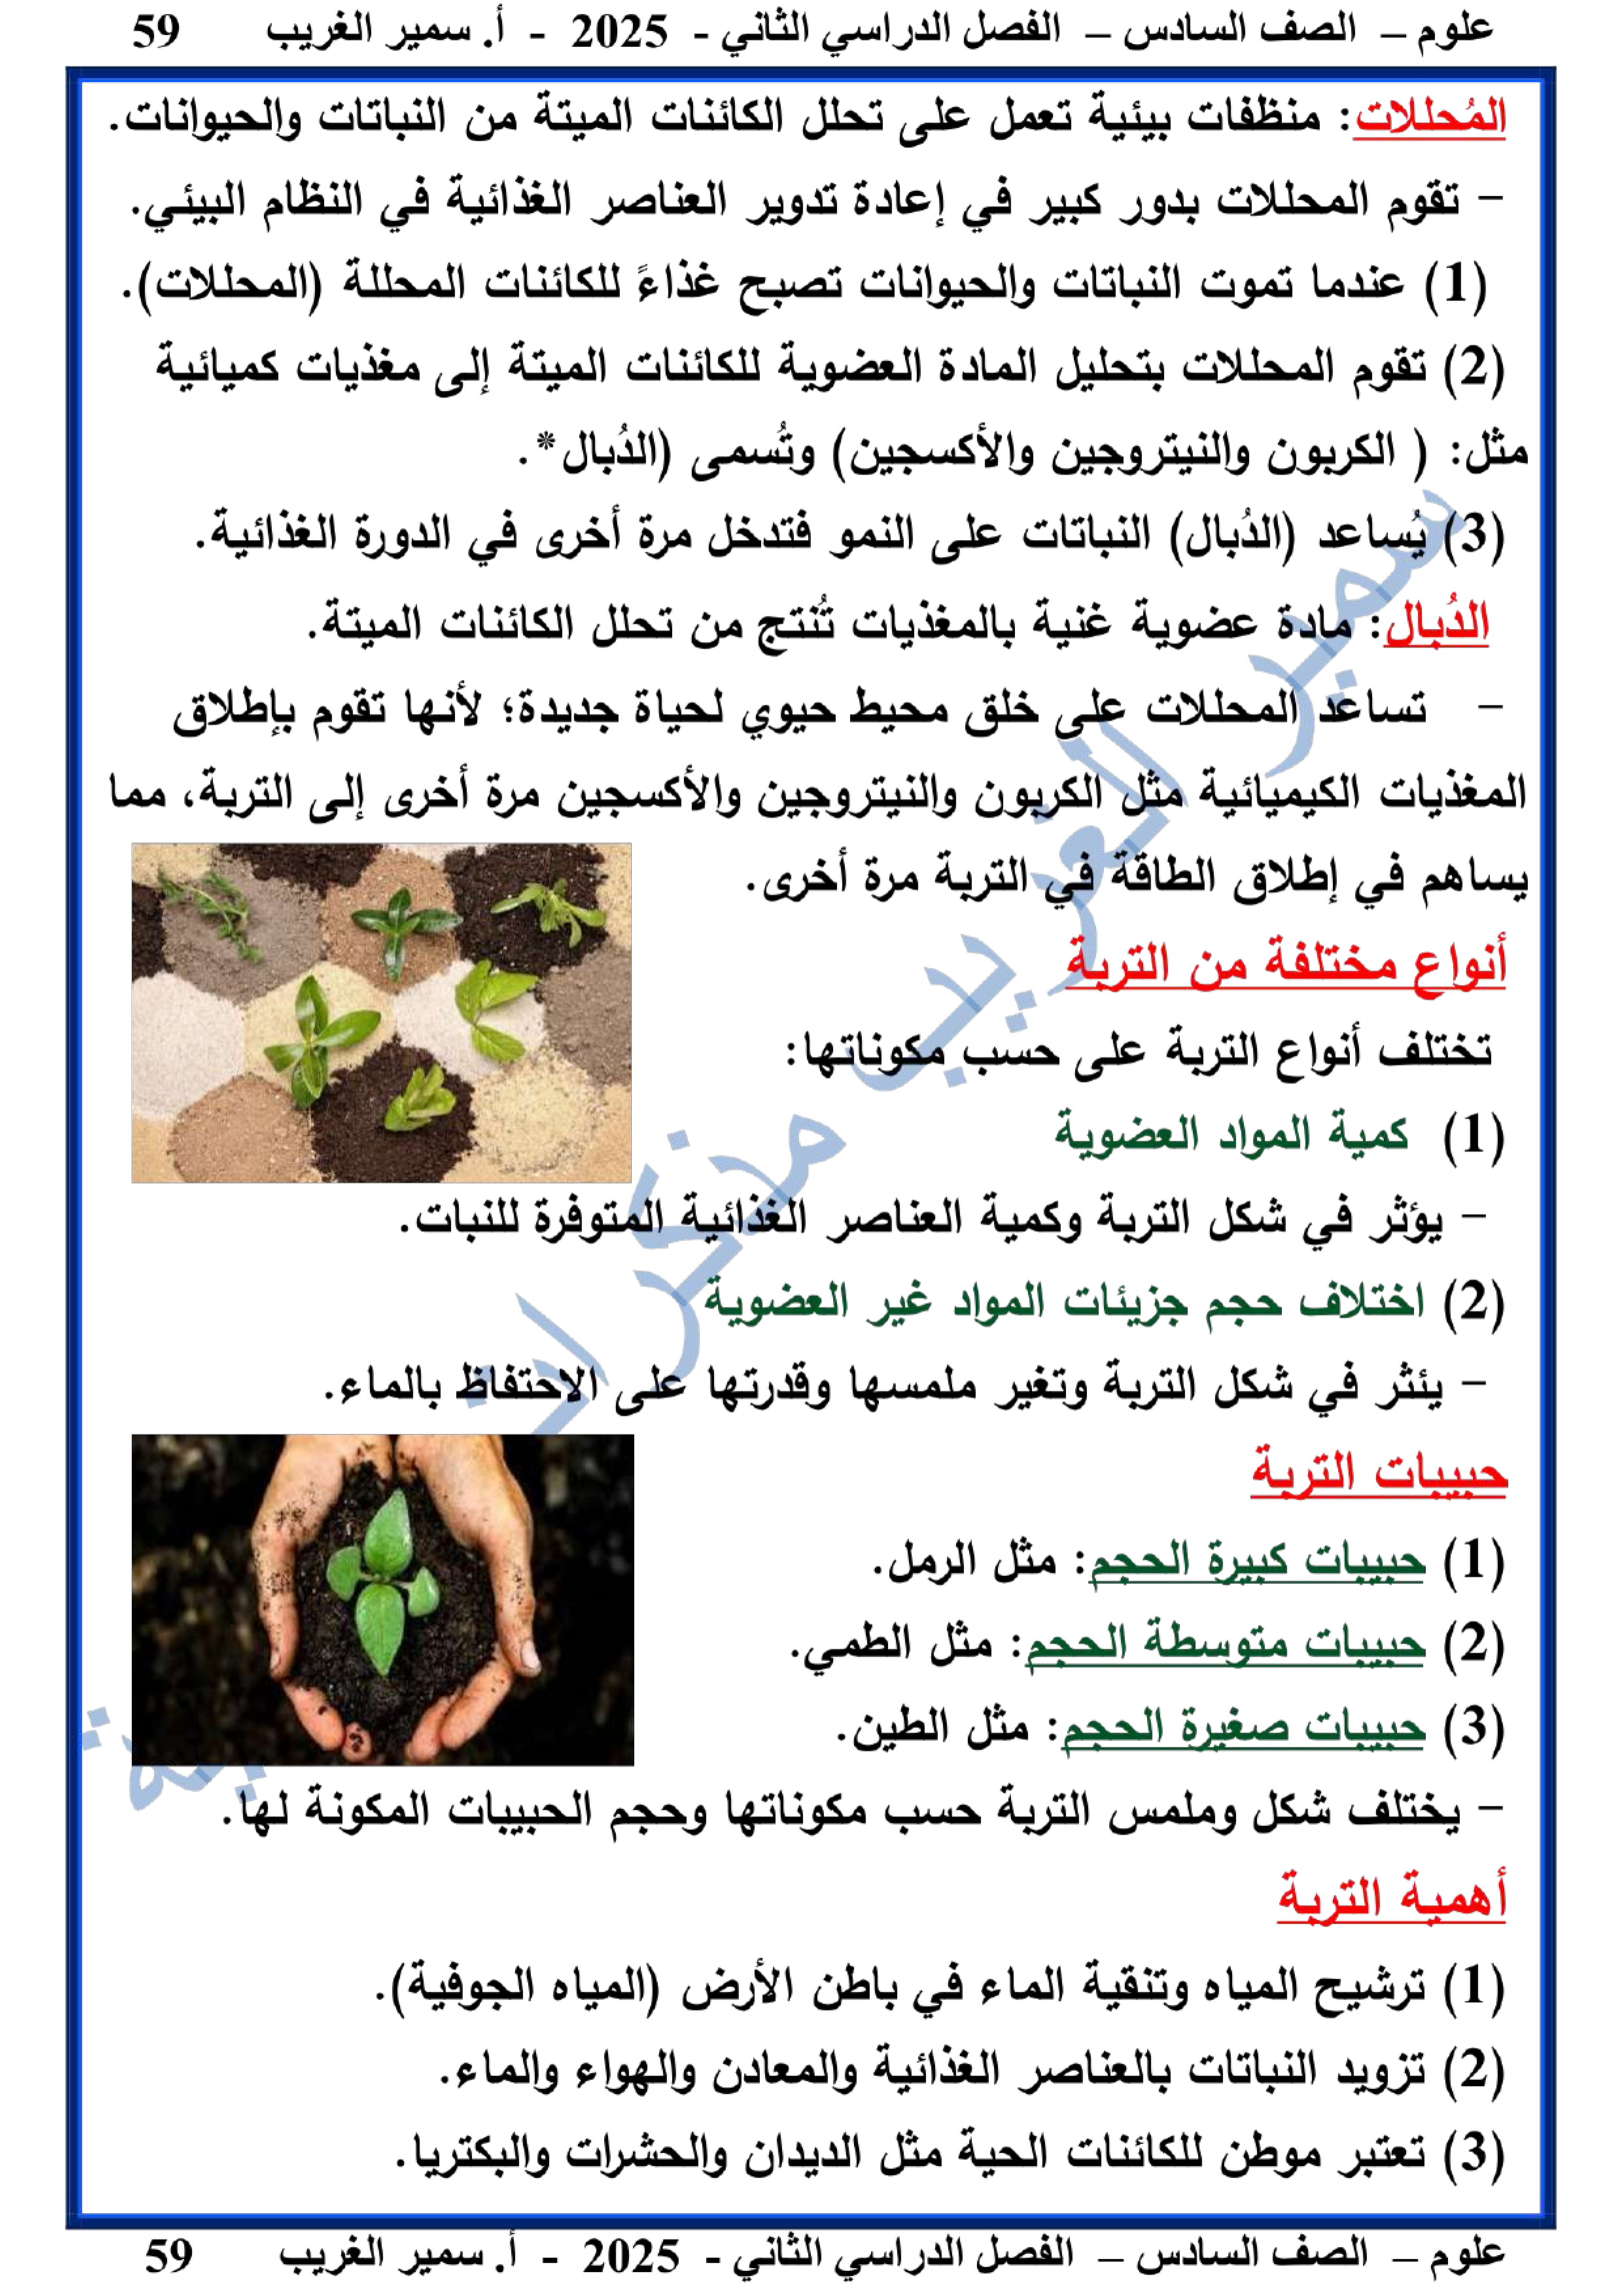 علوم – الصف السادس – الفصل الدراسي الثاني - 2025 - أ. سمير الغريب 59
المُحللات: منظفات بيئية تعمل على تحلل الكائنات الميتة من النباتات والحيوانات.
– تقوم المحللات بدور كبير في إعادة تدوير العناصر الغذائية في النظام البيئي.
(1) عندما تموت النباتات والحيوانات تصبح غذاءً للكائنات المحللة (المحللات).
(2) تقوم المحللات بتحليل المادة العضوية للكائنات الميتة إلى مغذيات كميائية
مثل: ( الكربون والنيتروجين والأكسجين) وتُسمى (الدُبال*.
(3) يُساعد (الدُبال) النباتات على النمو فتدخل مرة أخرى في الدورة الغذائية.
الدُبال: مادة عضوية غنية بالمغذيات تُنتج من تحلل الكائنات الميتة.
– تساعد المحللات على خلق محيط حيوي لحياة جديدة؛ لأنها تقوم بإطلاق
المغذيات الكيميائية مثل الكربون والنيتروجين والأكسجين مرة أخرى إلى التربة، مما
يساهم في إطلاق الطاقة في التربة مرة أخرى.
أنواع مختلفة من التربة
تختلف أنواع التربة على حسب مكوناتها:
(1) كمية المواد العضوية
– يؤثر في شكل التربة وكمية العناصر الغذائية المتوفرة للنبات.
(2) اختلاف حجم جزيئات المواد غير العضوية
– يئثر في شكل التربة وتغير ملمسها وقدرتها على الاحتفاظ بالماء.
حبيبات التربة
(1) حبيبات كبيرة الحجم: مثل الرمل.
(2) حبيبات متوسطة الحجم: مثل الطمي.
(3) حبيبات صغيرة الحجم: مثل الطين.
– يختلف شكل وملمس التربة حسب مكوناتها وحجم الحبيبات المكونة لها.
أهمية التربة
(1) ترشيح المياه وتنقية الماء في باطن الأرض (المياه الجوفية).
(2) تزويد النباتات بالعناصر الغذائية والمعادن والهواء والماء.
(3) تعتبر موطن للكائنات الحية مثل الديدان والحشرات والبكتريا.
علوم – الصف السادس – الفصل الدراسي الثاني - 2025 - أ. سمير الغريب 59
سمير الغريب